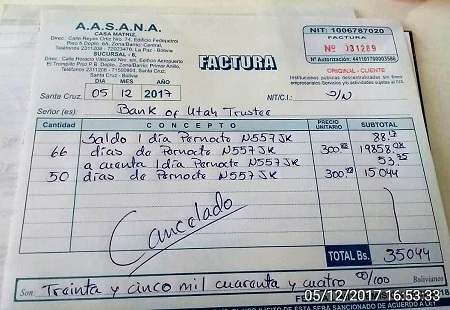 A.A.S.A.N.A.
CASA MATRIZ
Direc. Calle Reyes Ortiz Nro. 74, Edificio Fedepetrol
Piso 6 Depto. 6A, Zona/Barrio: Central,
Teléfonos 2311208 - 72500904, La Paz - Bolivia
SUCURSAL - 6
Direc. Calle Horacio Vásquez Nro. s/n, Edificio Aeropuerto
El Trompillo Piso P.B. Depto. Zona/Barrio: Primer Anillo,
Teléfonos 2311208 - Santa Cruz
Santa Cruz - Bolivia
FACTURA
NIT: 1006787020
FACTURA
Nº 031289
Nº Autorización: 441101700003586
ORIGINAL - CLIENTE
DIA MES AÑO
Santa Cruz, 05 12 2017 NIT/C.I.: S/N
Señor (es): Bank of Utah Trustee
Cantidad CONCEPTO PRECIO UNITARIO SUBTOTAL
Saldo 1 día Pernocte N557JK 88.17
66 dias de Pernocte N557JK 300.00 19858.08
a cuenta 1 dia Pernocte N557JK 53.75
50 dias de Pernocte N557JK 300.00 15044
Cancelado
TOTAL Bs. 35044
Son Treinta y cinco mil cuarenta y cuatro 00/100 Bolivianos
05/12/2017 16:53:33